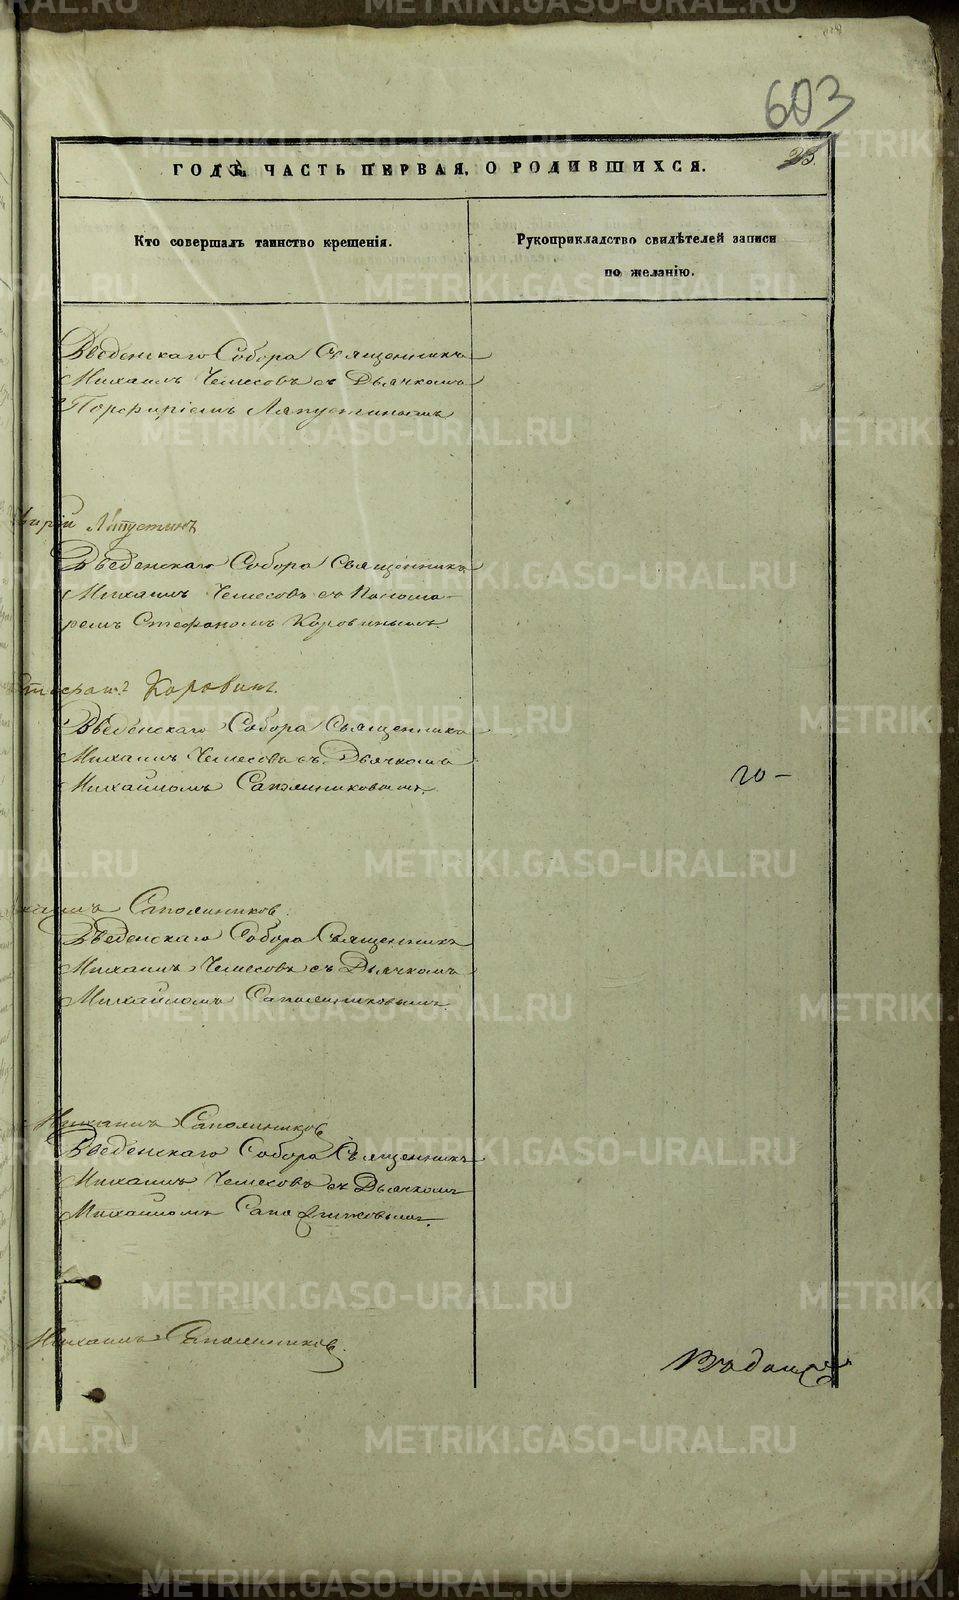 603
23.
ГОДѢ, ЧАСТЬ ПЕРВАЯ, О РОДИВШИХСЯ.
Кто совершалъ таинство крещенія.
Рукоприкладство свидѣтелей записи
по желанію.
Введенскаго Собора Священникъ
Михаилъ Чемесовъ съ Дьячкомъ
Порфиріемъ Лапустинымъ
Лапустинъ
Введенскаго Собора Священникъ
Михаилъ Чемесовъ съ Понома-
ремъ Стефаномъ Коровинымъ.
Коровинъ.
Введенскаго Собора Священникъ
Михаилъ Чемесовъ съ Дьячкомъ
Михаиломъ Сапожниковымъ.
20 –
Сапожниковъ.
Введенскаго Собора Священникъ
Михаилъ Чемесовъ съ Дьячкомъ
Михаиломъ Сапожниковымъ.
Михаилъ Сапожниковъ
Введенскаго Собора Священникъ
Михаилъ Чемесовъ съ Дьячкомъ
Михаиломъ Сапожниковымъ.
Михаилъ Сапожниковъ.
METRIKI.GASO-URAL.RU